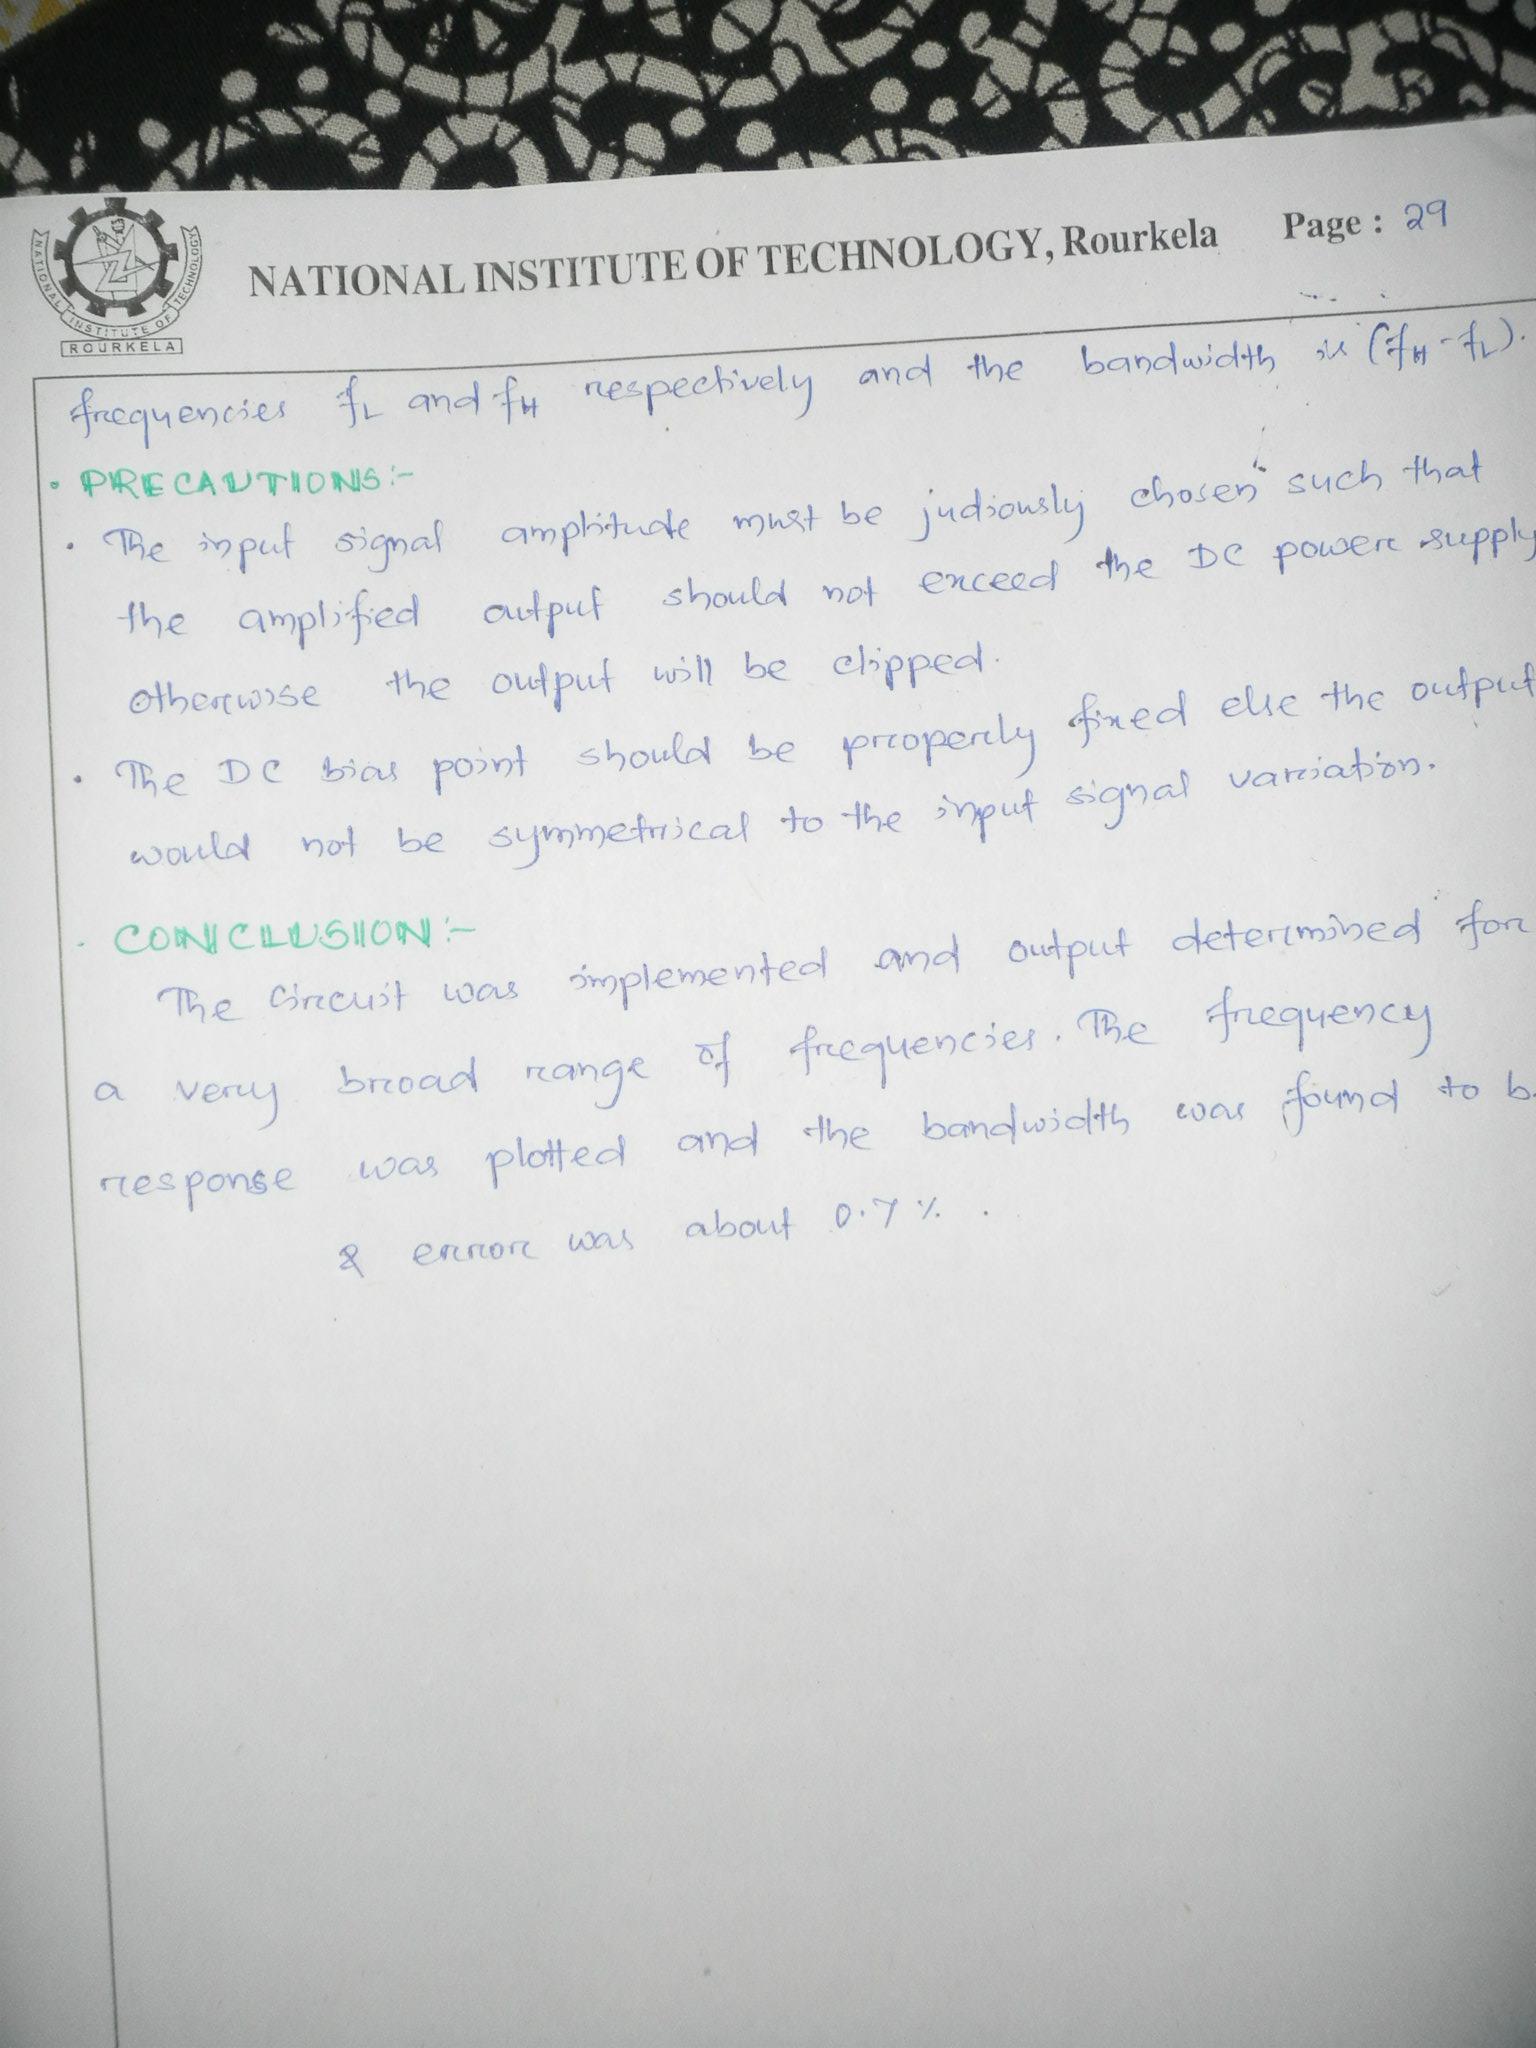 NATIONAL INSTITUTE OF TECHNOLOGY
ROURKELA
NATIONAL INSTITUTE OF TECHNOLOGY, Rourkela
Page : 29
frequencies fL and fH respectively and the bandwidth is (fH - fL).
• PRECAUTIONS:-
• The input signal amplitude must be judiously chosen such that
the amplified output should not exceed the DC power supply
otherwise the output will be clipped.
• The DC bias point should be properly fixed else the output
would not be symmetrical to the input signal variation.
• CONCLUSION:-
The circuit was implemented and output determined for
a very broad range of frequencies. The frequency
response was plotted and the bandwidth was found to b
& error was about 0.7 % .